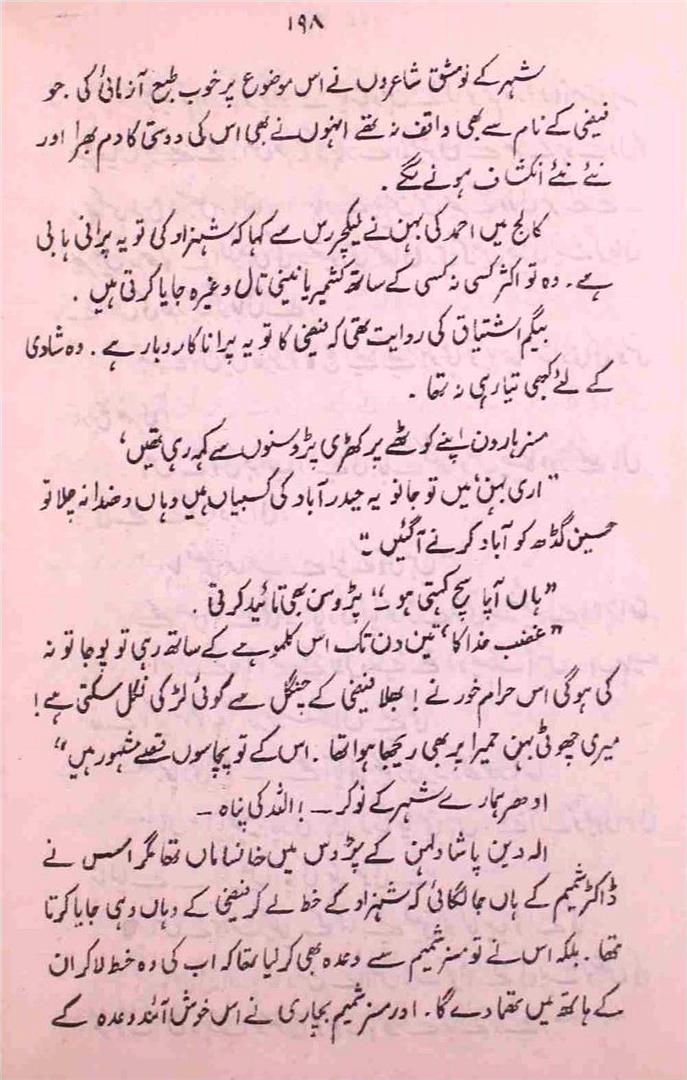 ۱۹۸
شہر کے نو مشق شاعروں نے اس موضوع پر خوب طبع آزمائی کی ۔ جو
فیفی کے نام سے بھی واقف نہ تھے انہوں نے بھی اس کی دوستی کا دم بھرا اور
نئے نئے انکشاف ہونے لگے ۔
کالج میں احمد کی بہن نے لیکچررس سے کہا کہ شہزاد کی تو یہ پرانی ہابی
ہے ۔ وہ تو اکثر کسی نہ کسی کے ساتھ کشمیر یا نینی تال وغیرہ جایا کرتی ہیں ۔
بیگم اشتیاق کی روایت تھی کہ فیفی کا تو یہ پرانا کاروبار ہے ۔ وہ شادی
کے لئے کبھی تیار ہی نہ تھا ۔
مسز ہارون اپنے کوٹھے پر کھڑی پڑوسنوں سے کہہ رہی تھیں ،
" اری بہن ، میں تو جانو یہ حیدرآباد کی کسبیاں ہیں وہاں دھندا نہ چلا تو
حسین گڈھ کو آباد کرنے آ گئیں ۔"
" ہاں آپا سچ کہتی ہو ۔" پڑوسن بھی تائید کرتی ۔
" غضب خدا کا ، تین دن تک اس کلموہے کے ساتھ رہی تو پوجا تو نہ
کی ہوگی اس حرام خور نے ! بھلا فیفی کے چنگل سے کوئی لڑکی نکل سکتی ہے !
میری چھوٹی بہن حمیرا پر بھی ریجھا ہوا تھا ۔ اس کے تو پچاسوں قصے مشہور ہیں "
ادھر ہمارے شہر کے نوکر ــ ! اللہ کی پناہ ــ
الہ دین پاشا دلہن کے پڑوس میں خانساماں تھا مگر اسس نے
ڈاکٹر شمیم کے ہاں جا لگائی کہ شہزاد کے خط لے کر فیفی کے وہاں وہی جایا کرتا
تھا ۔ بلکہ اس نے تو مسز شمیم سے وعدہ بھی کر لیا تھا کہ اب کی وہ خط لا کر ان
کے ہاتھ میں تھما دے گا ۔ اور مسز شمیم بچاری نے اس خوش آئند وعدہ کے